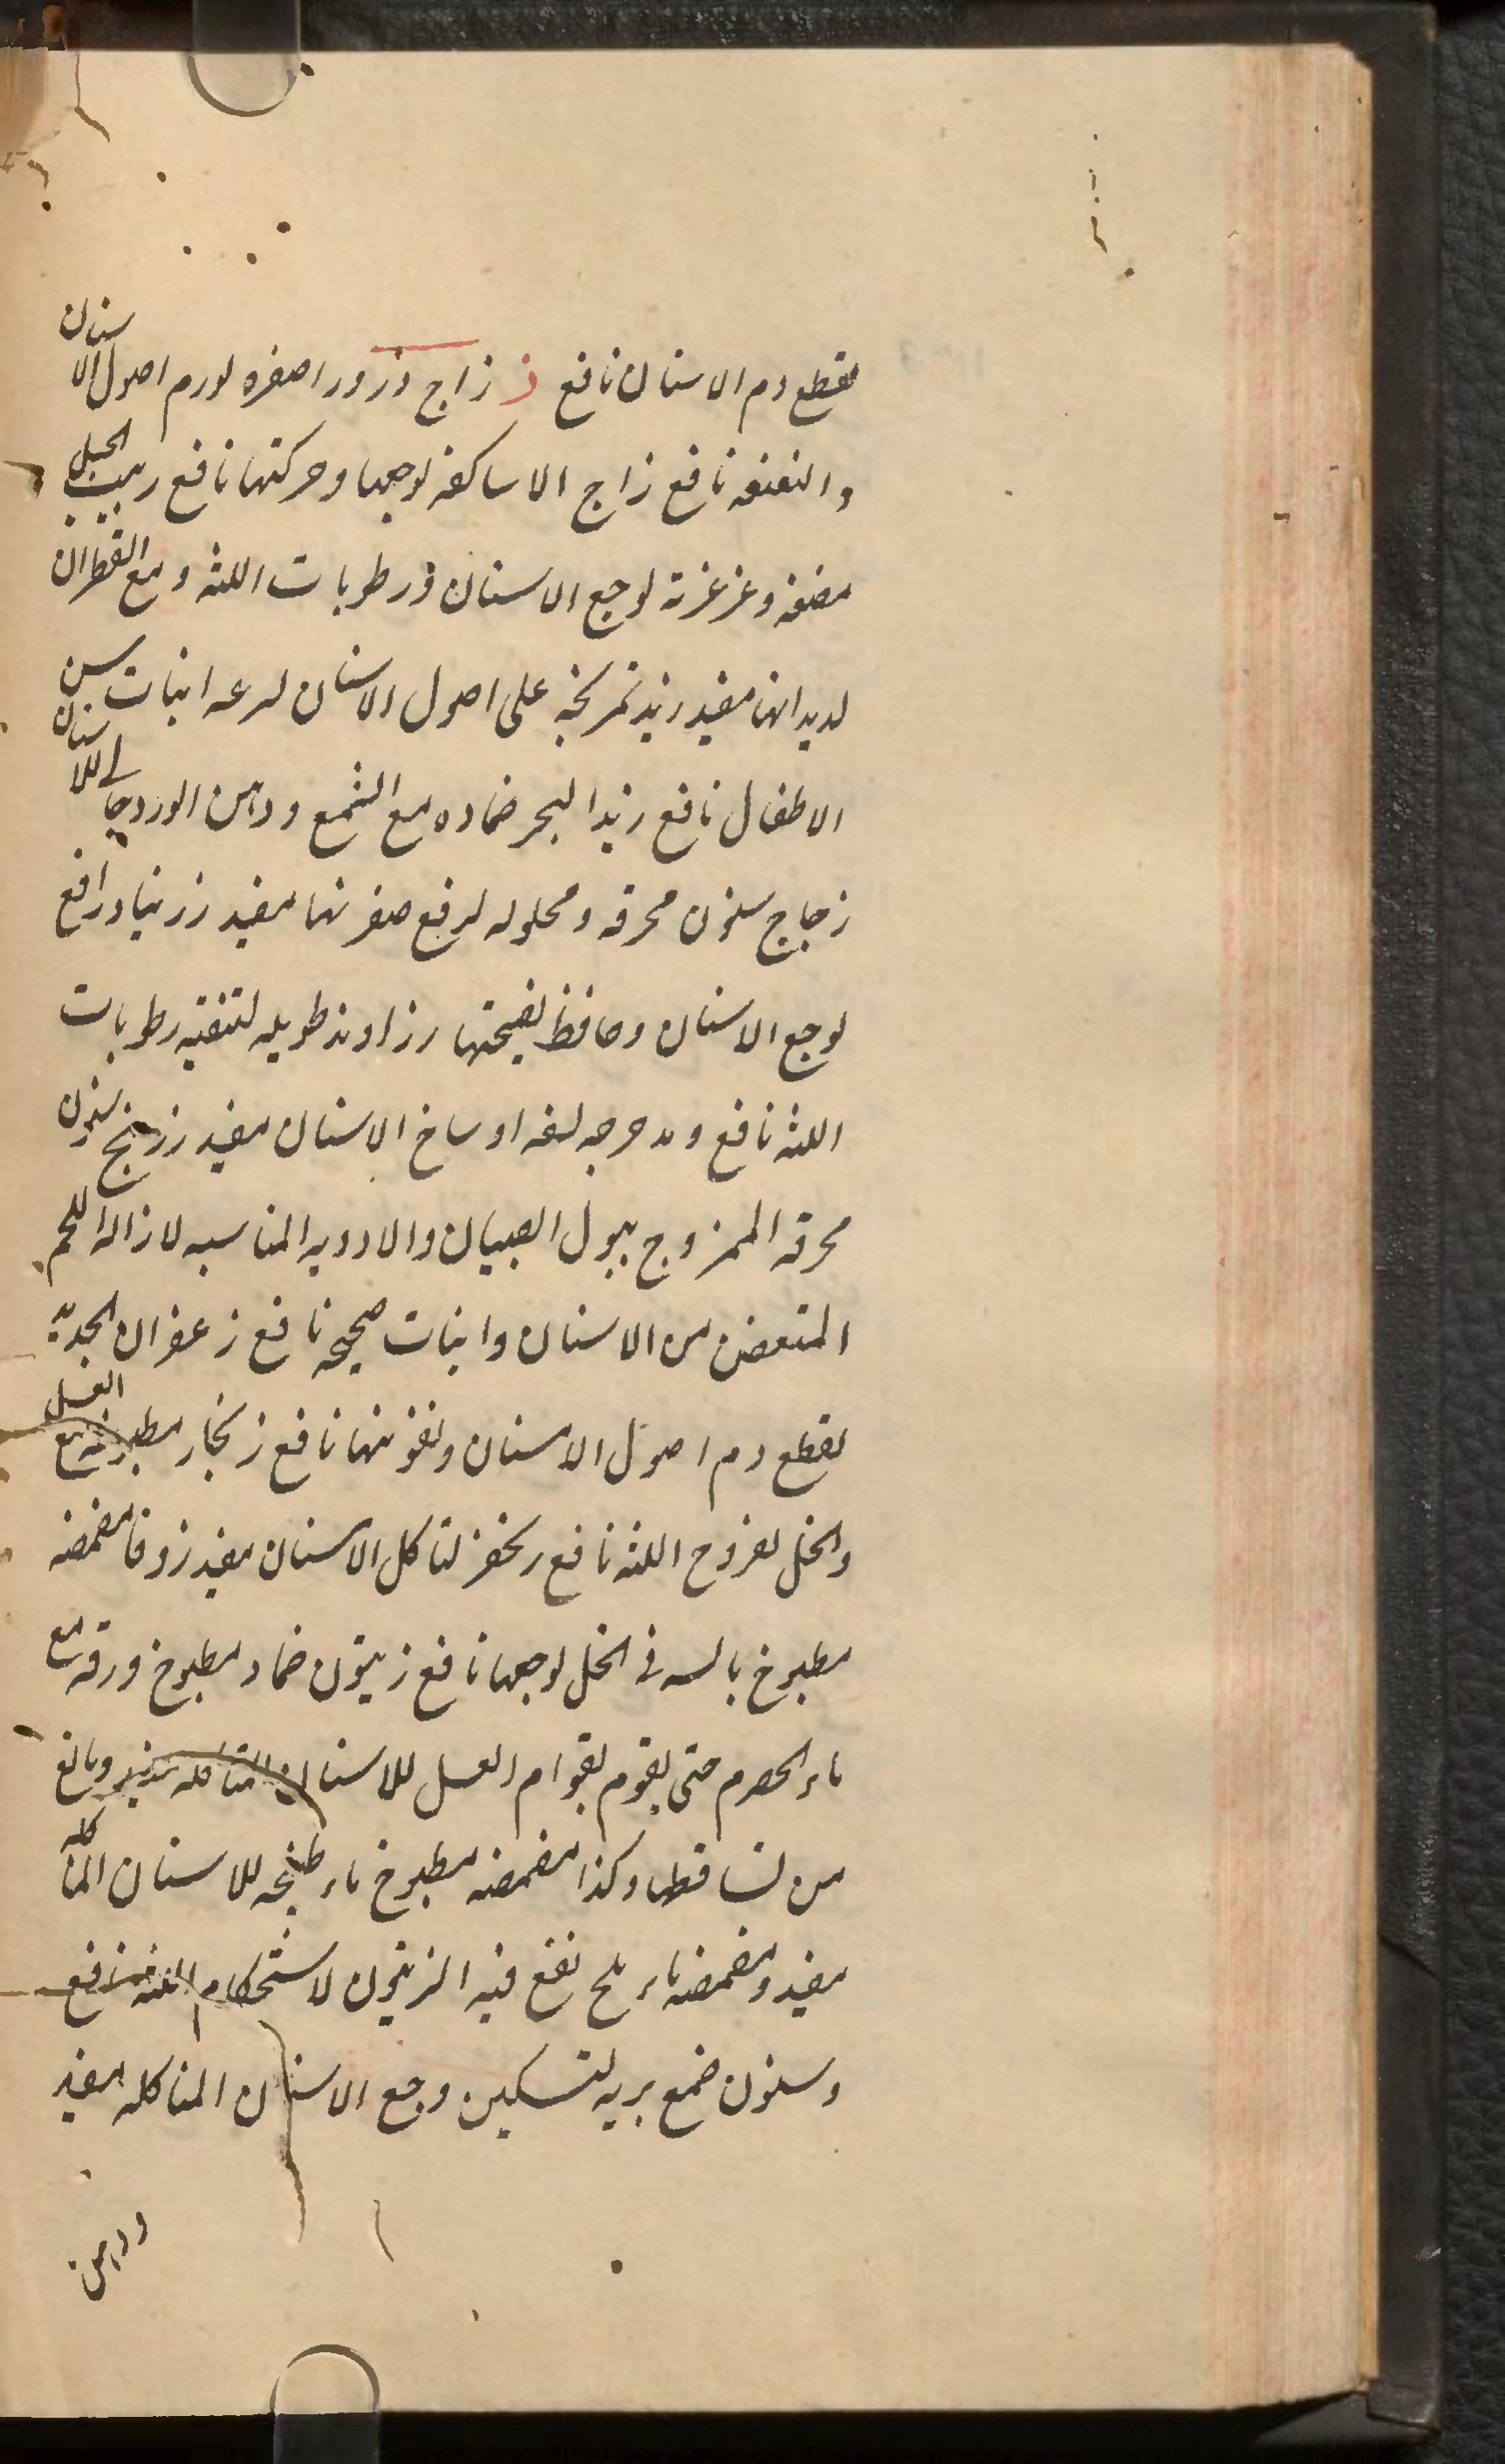 لقطع دم الاسنان نافع ز زاج وزرور اصفره لورم اصول الاسنان
والعفنه نافع زاج الاساكفه لوجعها وحركتها نافع زبيب الجبل
مضغه وغرغرته لوجع الاسنان ورطوبات اللثه ومع القطران
لديدانها مفيد زبد تمريخه على اصول الاسنان لسرعه انبات سن
الاطفال نافع زبد البحر ضماده مع الشمع ودهن الورد للاسنان
زجاج سنون محرقه ومحلوله لرفع صفرتها مفيد زرنباد رافع
لوجع الاسنان وحافظ لصحتها زراوند طويله لتنقيه رطوبات
اللثه نافع ومدحرجه لدفع اوساخ الاسنان مفيد زرنيخ سنون
محرقه الممزوج ببول الصبيان والادويه المناسبه لازاله اللحم
المتعفن من الاسنان وانبات صحيحه نافع زعفران الحديد
لقطع دم اصول الاسنان وتقويتها نافع زنجار مطبوخه مع العسل
والخل لقروح اللثه نافع لتاكل الاسنان مفيد زوفا مضمضه
مطبوخ يابسه فى الخل لوجعها نافع زيتون ضماد مطبوخ ورقه مع
ماء الحصرم حتى يقوم بقوام العسل للاسنان المتاكله مفيد ومانع
من تساقطها وكذا مضمضه مطبوخ ماء طبخه للاسنان المتاكله
مفيد ومضمضه ماء ملح نقع فيه الزيتون لاستحكام اللثه نافع
وسنون صمغ بريه لتسكين وجع الاسنان المتاكله مفيد
ودهن